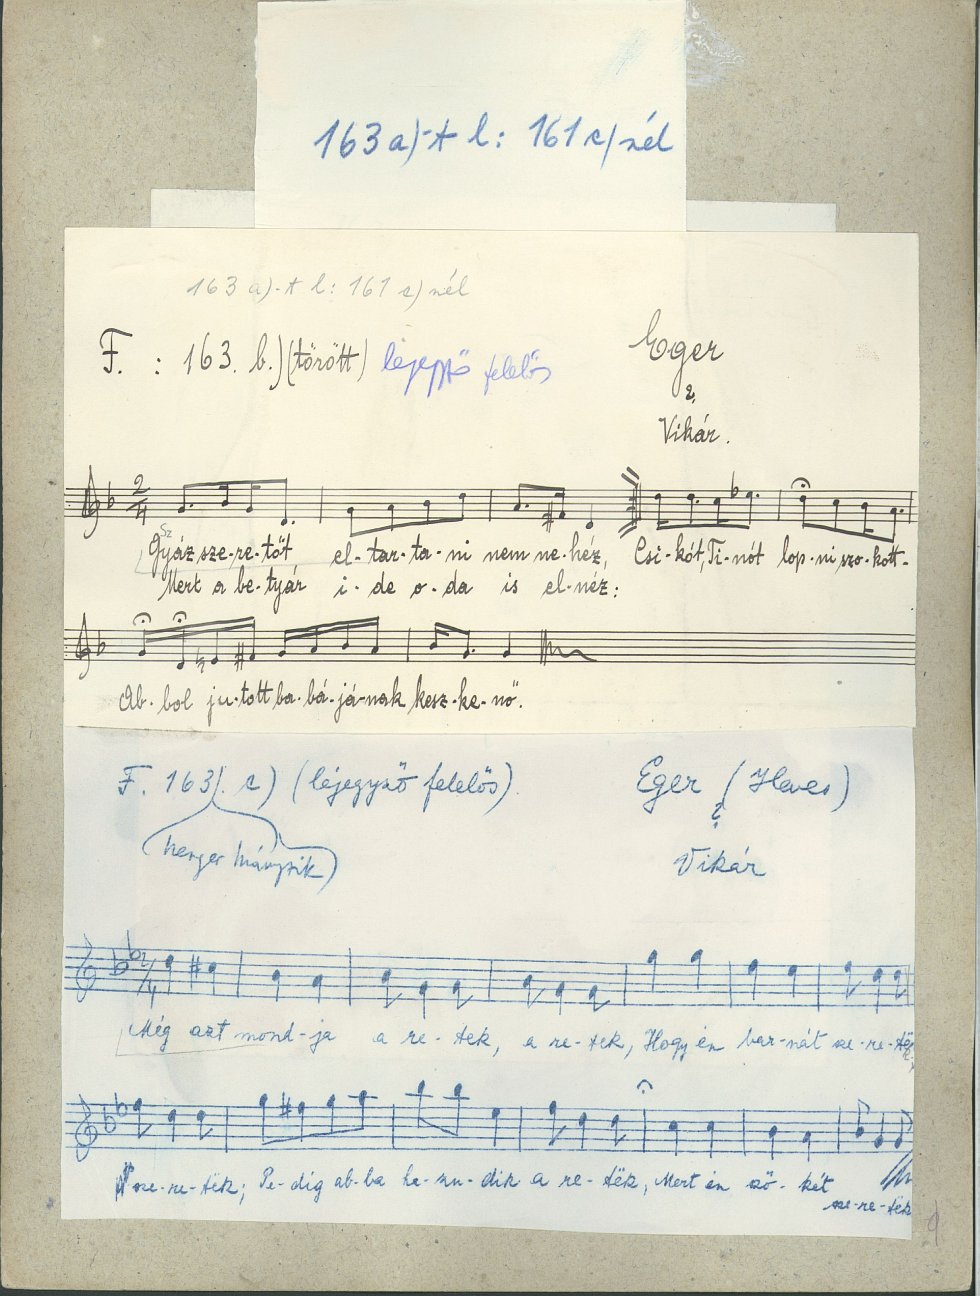 163 a)-t l: 161 c) nél
163 a)-t l: 161 c) nél
F. : 163. b.) (törött) lejegyző felelős
Eger
?
Vikár.
2/4
Sz
Gyáz sze-re-tőt el-tar-ta-ni nem ne-héz, Csi-kót, Ti-nót lop-ni szo-kott-
Mert a be-tyár i-de o-da is el-néz:
Ab-bol ju-tott ba-bá-já-nak kesz-ke-nő.
F. 163. c) (lejegyző felelős)
Eger (Heves)
?
(henger hiányzik)
Vikár
2/4
Még azt mond-ja a re-tek, a re-tek, Hogy én bar-nát sze-re-tek
sze-re-tëk; Pe-dig ab-ba ha-zu-dik a re-tëk, Mert én sző-két
sze-re-tëk
9